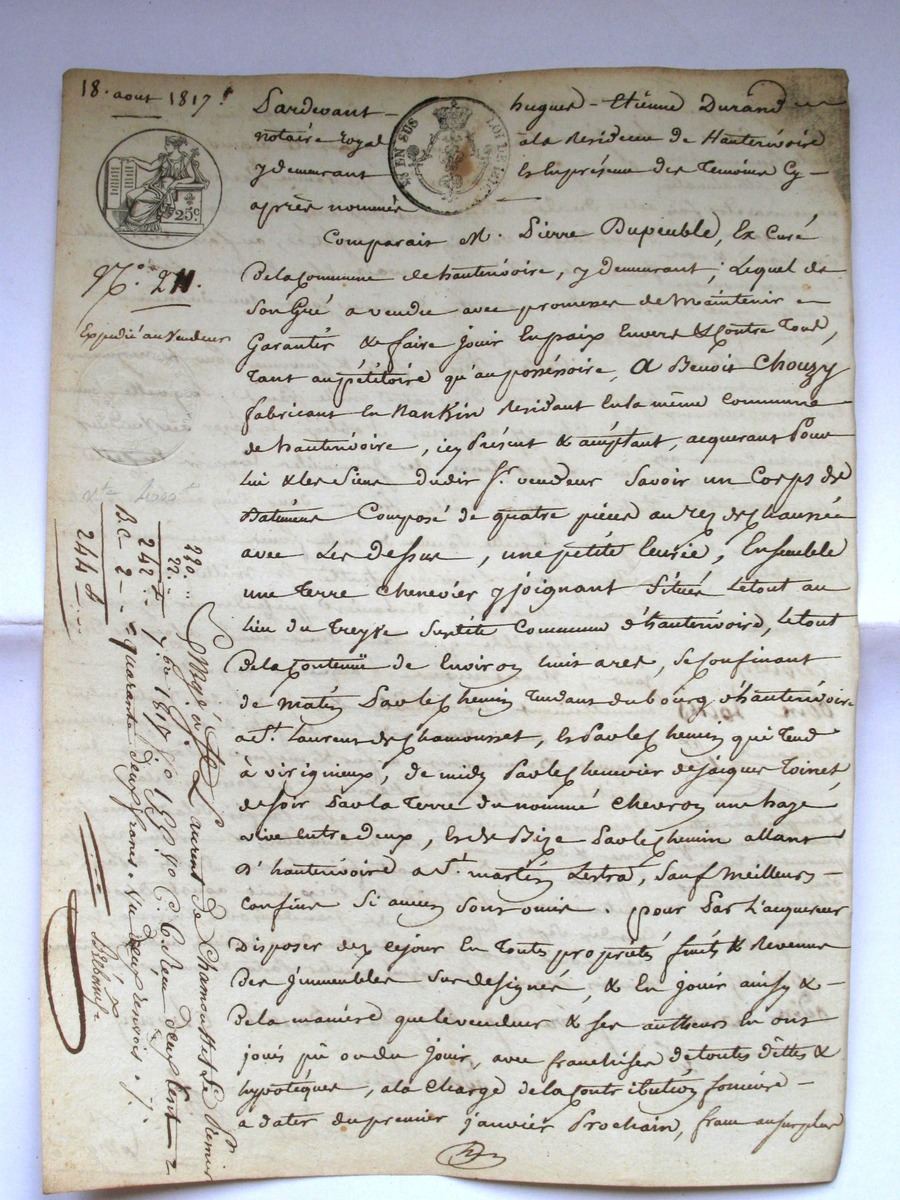 18. aout 1817.
25 c.
N.º 211.
Expedié au Vendeur
Pardevant hugues - Etienne Durand
notaire royal à la Residence de Hauterivoire
y demeurant Et En presence des Temoins Cy-
après nommés
Comparait M. Pierre Dupeuble, Ex Curé
De la Commune de hauterivoire, y Demeurant; Lequel de
Son Gré a vendu avec promesse de Maintenir
Garantir & faire jouir En paix Envers & Contre Tous,
Tant au pétitoire qu'au possessoire, A Benoit Chouzy
fabricant En Nankin Residant En la même Commune
de hauterivoire, icy Présent & acceptant, acquerant Pour
Lui & Les Siens dudit Sr. vendeur Savoir un Corps de
Batiment Composé de quatre pièces au rez de Chaussée
avec Les dessus, une petite Ecurie, Ensemble
une Terre Chenevier y joignant Situés Le tout au
lieu du Treyve Susdite Commune d'hauterivoire, Le tout
De la Contenüe de Environ huit ares, Se Confinant
de Matin Par le Chemin Tendant du bourg d'hauterivoire
a St. Laurent de Chamousset, Et Par le Chemin qui Tend
à virigneux, de midy Par le Chenevier de jacques Toinet
de Soir Par la Terre du nommé Chevron une haye
vive Entre Deux, Et de Bize Par le Chemin allant
D'hauterivoire a St. martin Lestra, Sauf Meilleurs
Confins Si aucuns Sont omis. pour Par L'acquereur
Disposer dez ce jour En Toute propriété fruits & Revenus
Des Immeubles Sus designés, & En jouir ainsy &
De la maniere que le vendeur & Ses autheurs En ont
joui pû ou du jouir, avec franchises de toutes dettes &
hypotèques, a la Charge de la Contribution foncière
a dater du premier janvier Prochain, franc au surplus
220. "
22. "
242. "
B.C 2
244
à St Laurent de Chamousset Le
7.bre 1817
quarante deux francs.